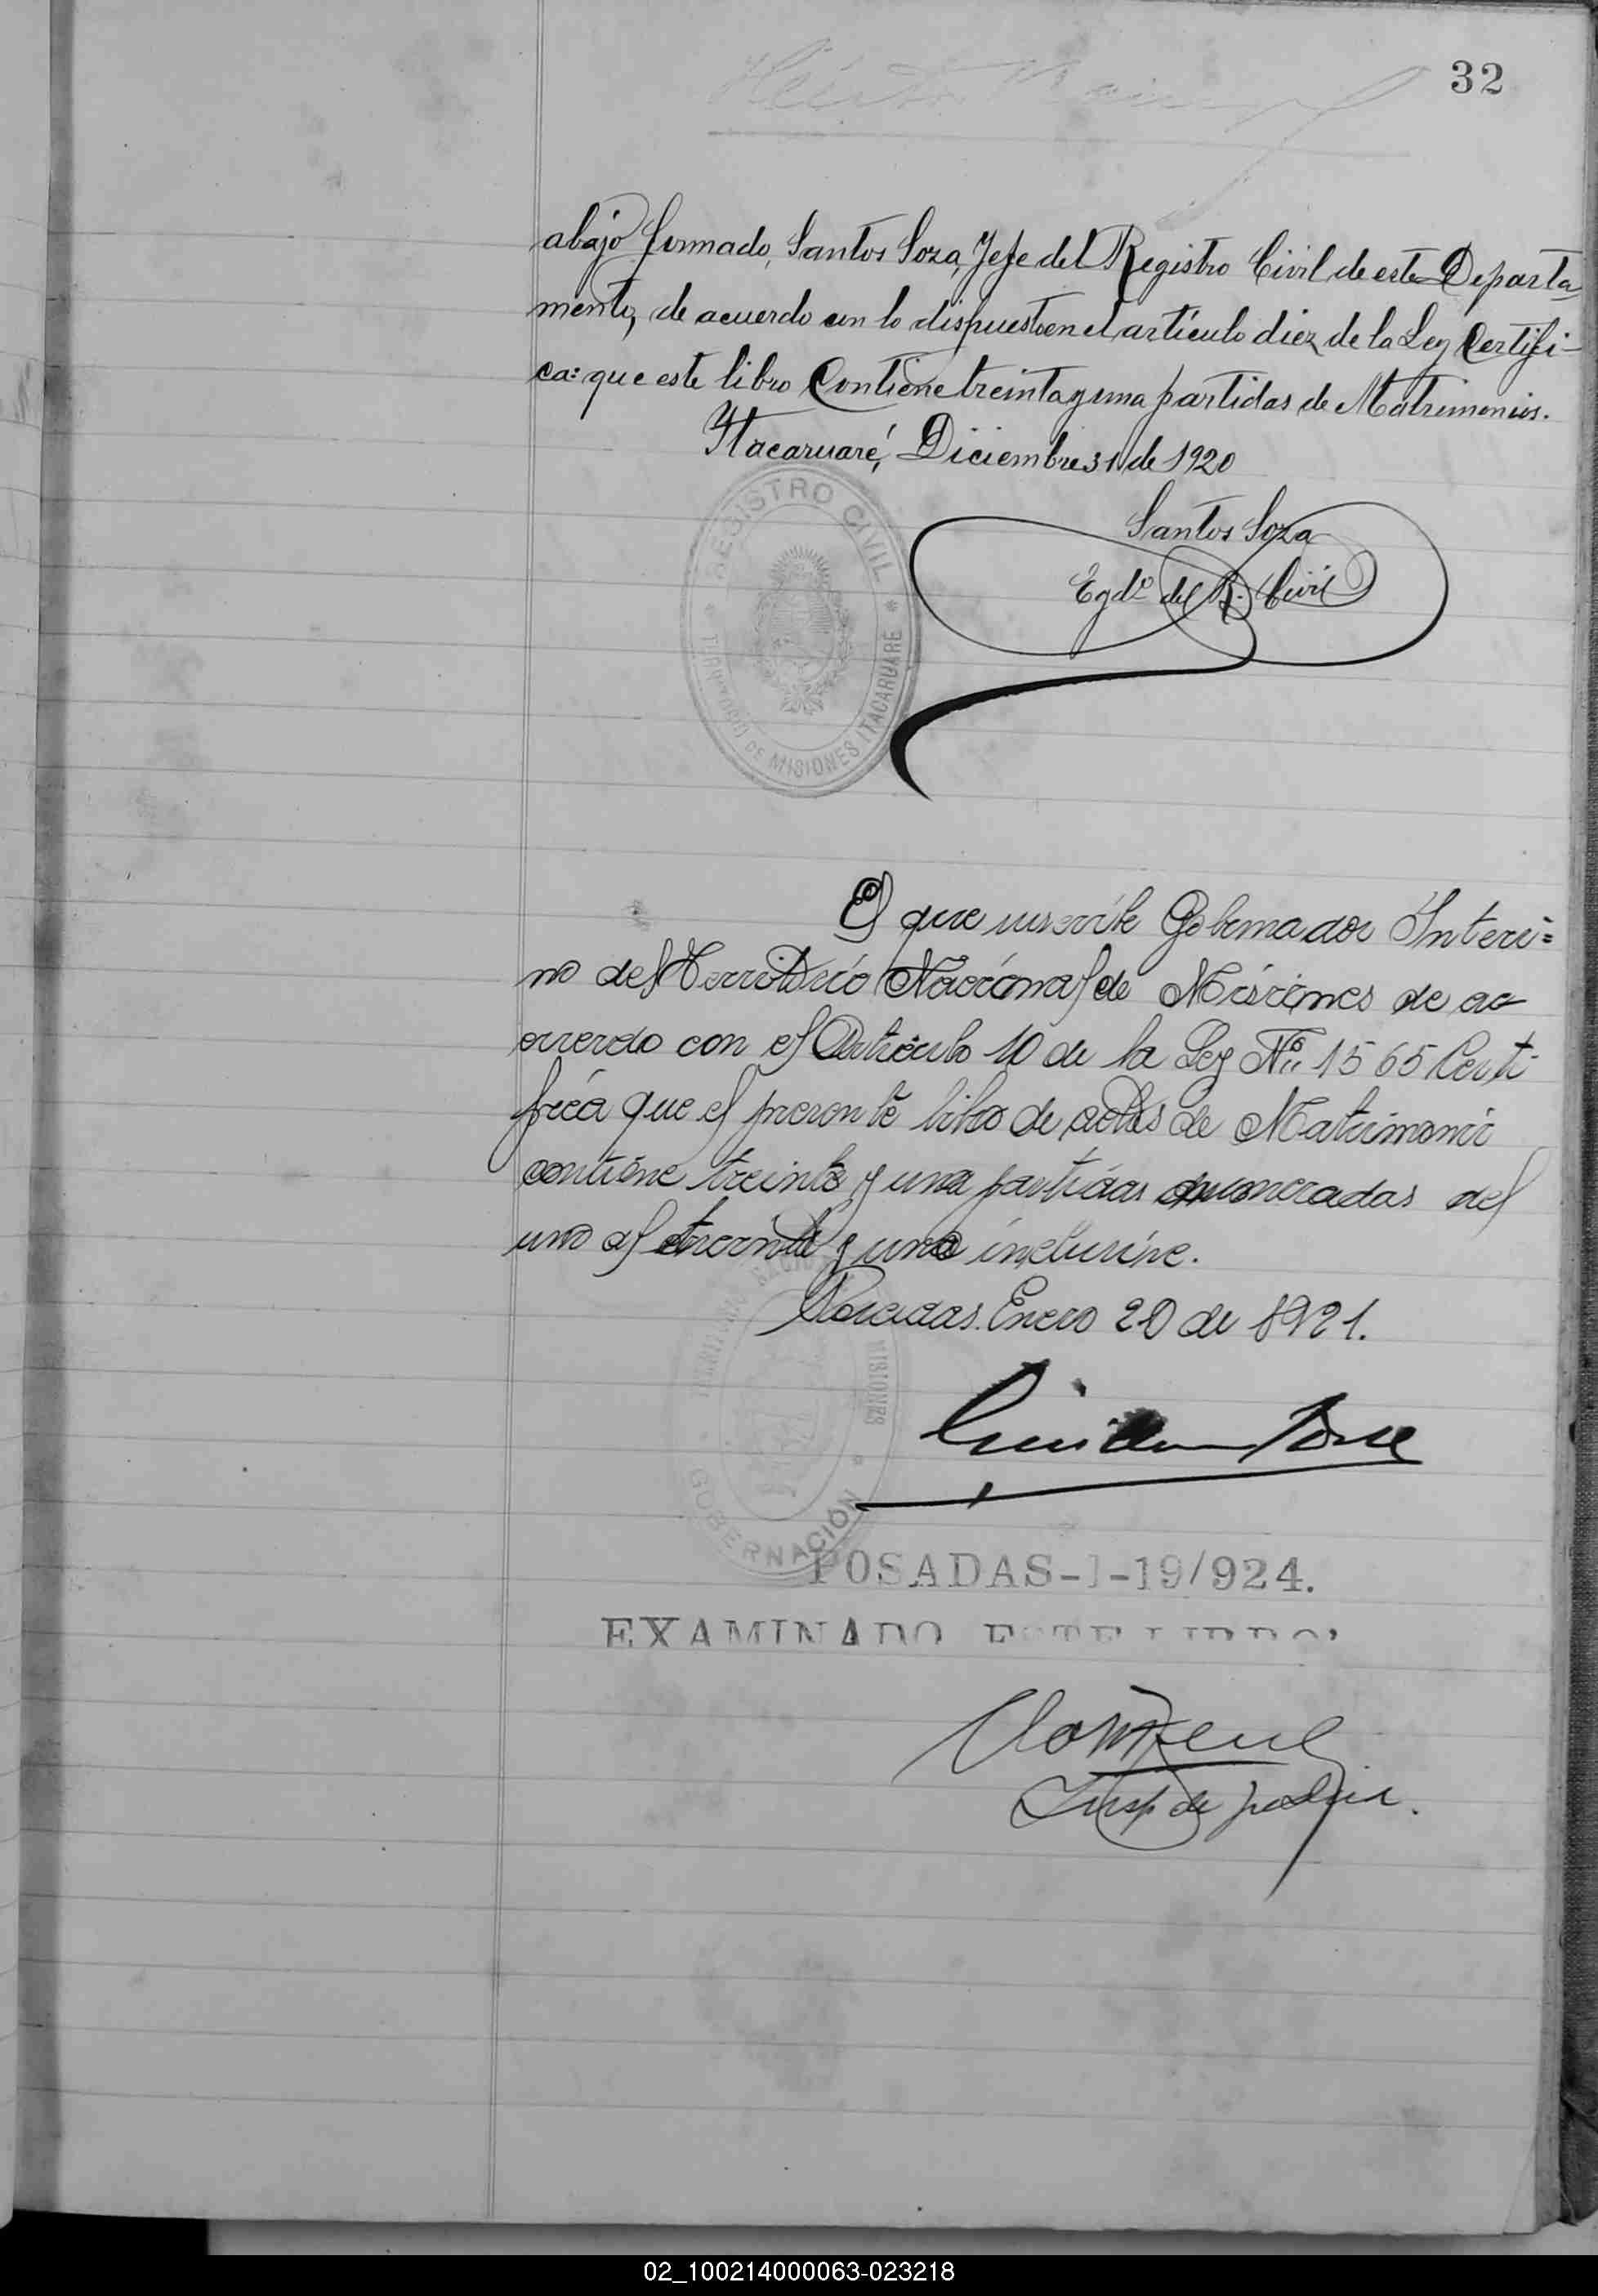 32
abajo firmado, Santos Soza, Jefe del Registro Civil de este Departa
mento, de acuerdo con lo dispuesto en el artículo diez de la Ley Certifi-
ca: que este libro Contiene treinta y una partidas de Matrimonios.
Itacaruaré, Diciembre 31 de 1920
REGISTRO CIVIL
TERRITORIO DE MISIONES ITACARUARE
Santos Soza
Egdo. del R. Civil
El que suscribe Gobernador Interi=
no del Territorio Nacional de Misiones de ac
uerdo con el Artículo 10 de la Ley No. 1565 Certi
fica que el presente libro de actas de Matrimonio
contiene treinta y una partidas enumeradas del
uno al treinta y uno inclusive.
Posadas. Enero 20 de 1921.
MISIONES
GOBERNACIÓN
POSADAS-1-19/924.
EXAMINADO ESTE LIBRO
Insp. de policía.
02_100214000063-023218